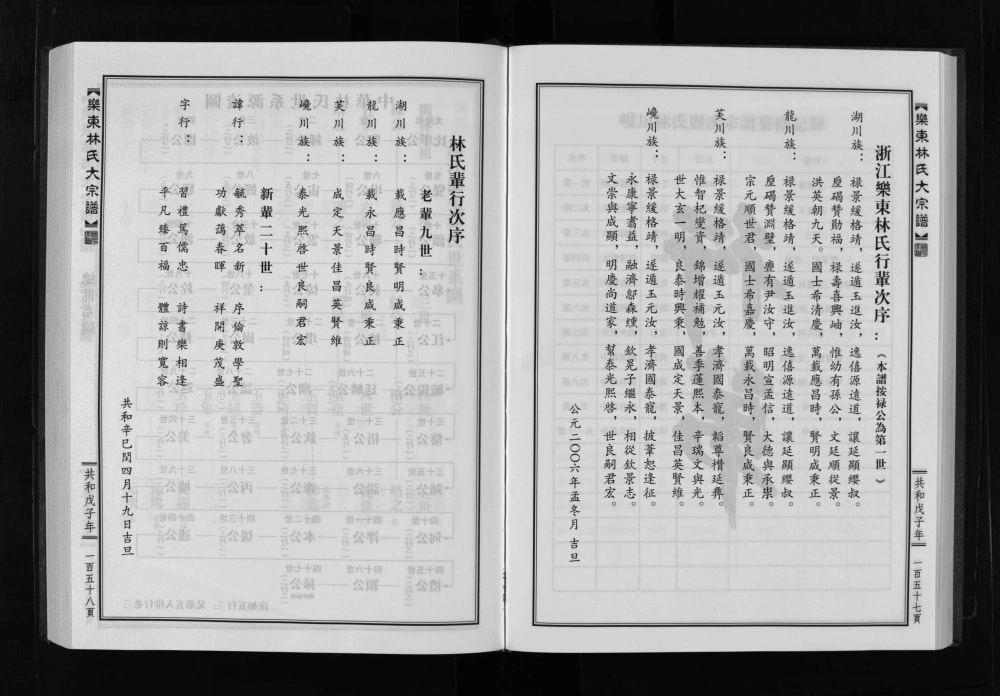 【樂東林氏大宗譜】
共和戊子年
一百五十七頁
浙江樂東林氏行輩次序：《本譜按祿公為第一世》
湖川族：
祿景緩格靖，遂遁玉進汝，逸僖源遠道，讓廷顯纓叔。
垕碣贊勛福，祿壽喜興岫，惟幼有孫公，文廷順從景。
洪英朝九天。國士希清慶，萬載應昌時，賢明咸秉正。
龍川族：
祿景緩格靖，遂遁玉進汝，逸僖源遠道，讓廷顯纓叔。
垕碣贊淵璧，壺有尹汝守，昭明宣孟信，大德與承祟。
宗元順世君，國士希嘉慶，萬載永昌時，賢良咸秉正。
芙川族：
祿景緩格靖，遂遁玉元汝，孝濟國泰寵，韜尊櫍廷彝。
惟智杞變資，錦增耀補勉，善季蓮熙本，辛瑞文與光。
世大玄一明，良泰時興秉，國成定天景，佳昌英賢維。
嶢川族：
祿景緩格靖，遂遁玉元汝，孝濟國泰寵，披葦恕逢征。
永康寧耆益，融濟鄔森纁，欽晃子繼永，相從欽景志。
文崇與成顯，明慶尚道家，幫泰光熙啓，世良嗣君宏。
公元二〇〇六年孟冬月 吉旦
林氏輩行次序
老輩九世：
湖川族：
載應昌時賢明咸秉正
龍川族：
載永昌時賢良咸秉正
芙川族：
成定天景佳昌英賢維
嶢川族：
泰光熙啓世良嗣君宏
新輩二十世：
諱行：
毓秀萃名新 序倫敦學聖
功獻藹春暉 祥開庚茂盛
字行：
習禮篤儒忠 詩書樂相逢
平凡臻百福 體諒則寬容
共和辛巳閏四月十九日吉旦
【樂東林氏大宗譜】
共和戊子年
一百五十八頁